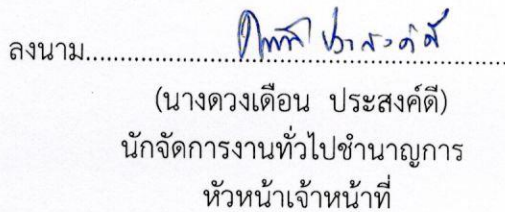 ลงนาม
(นางดวงเดือน ประสงค์ดี)
นักจัดการงานทั่วไปชำนาญการ
หัวหน้าเจ้าหน้าที่